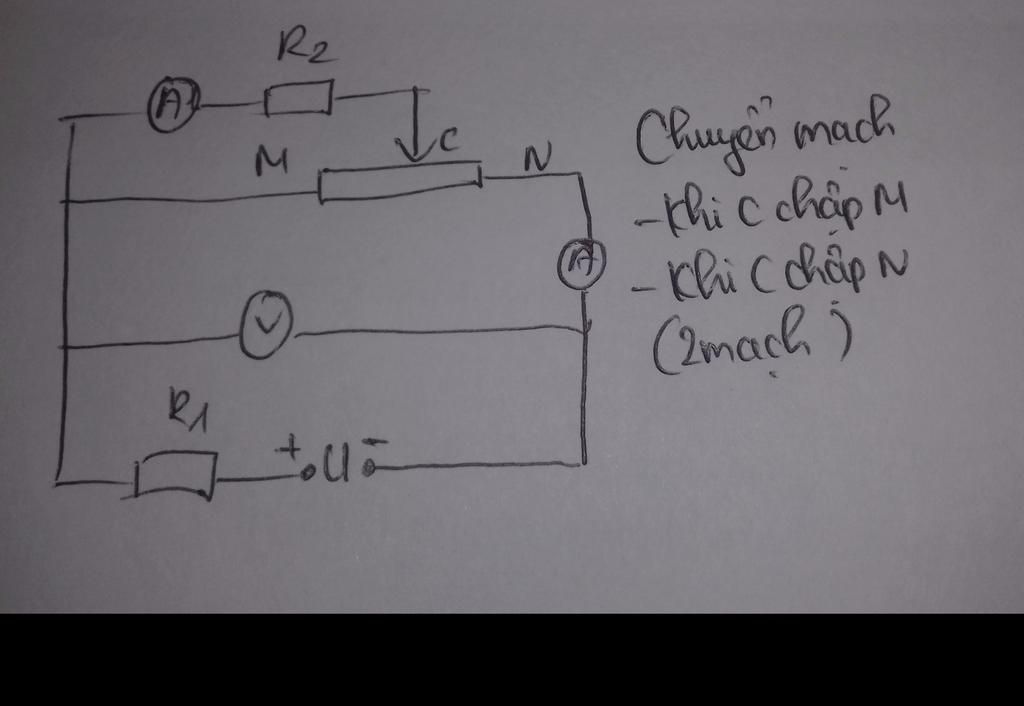 R2
A
C
M
N
A
V
R1
+ U -
Chuyển mạch
- Khi C chập M
- Khi C chập N
(2 mạch)